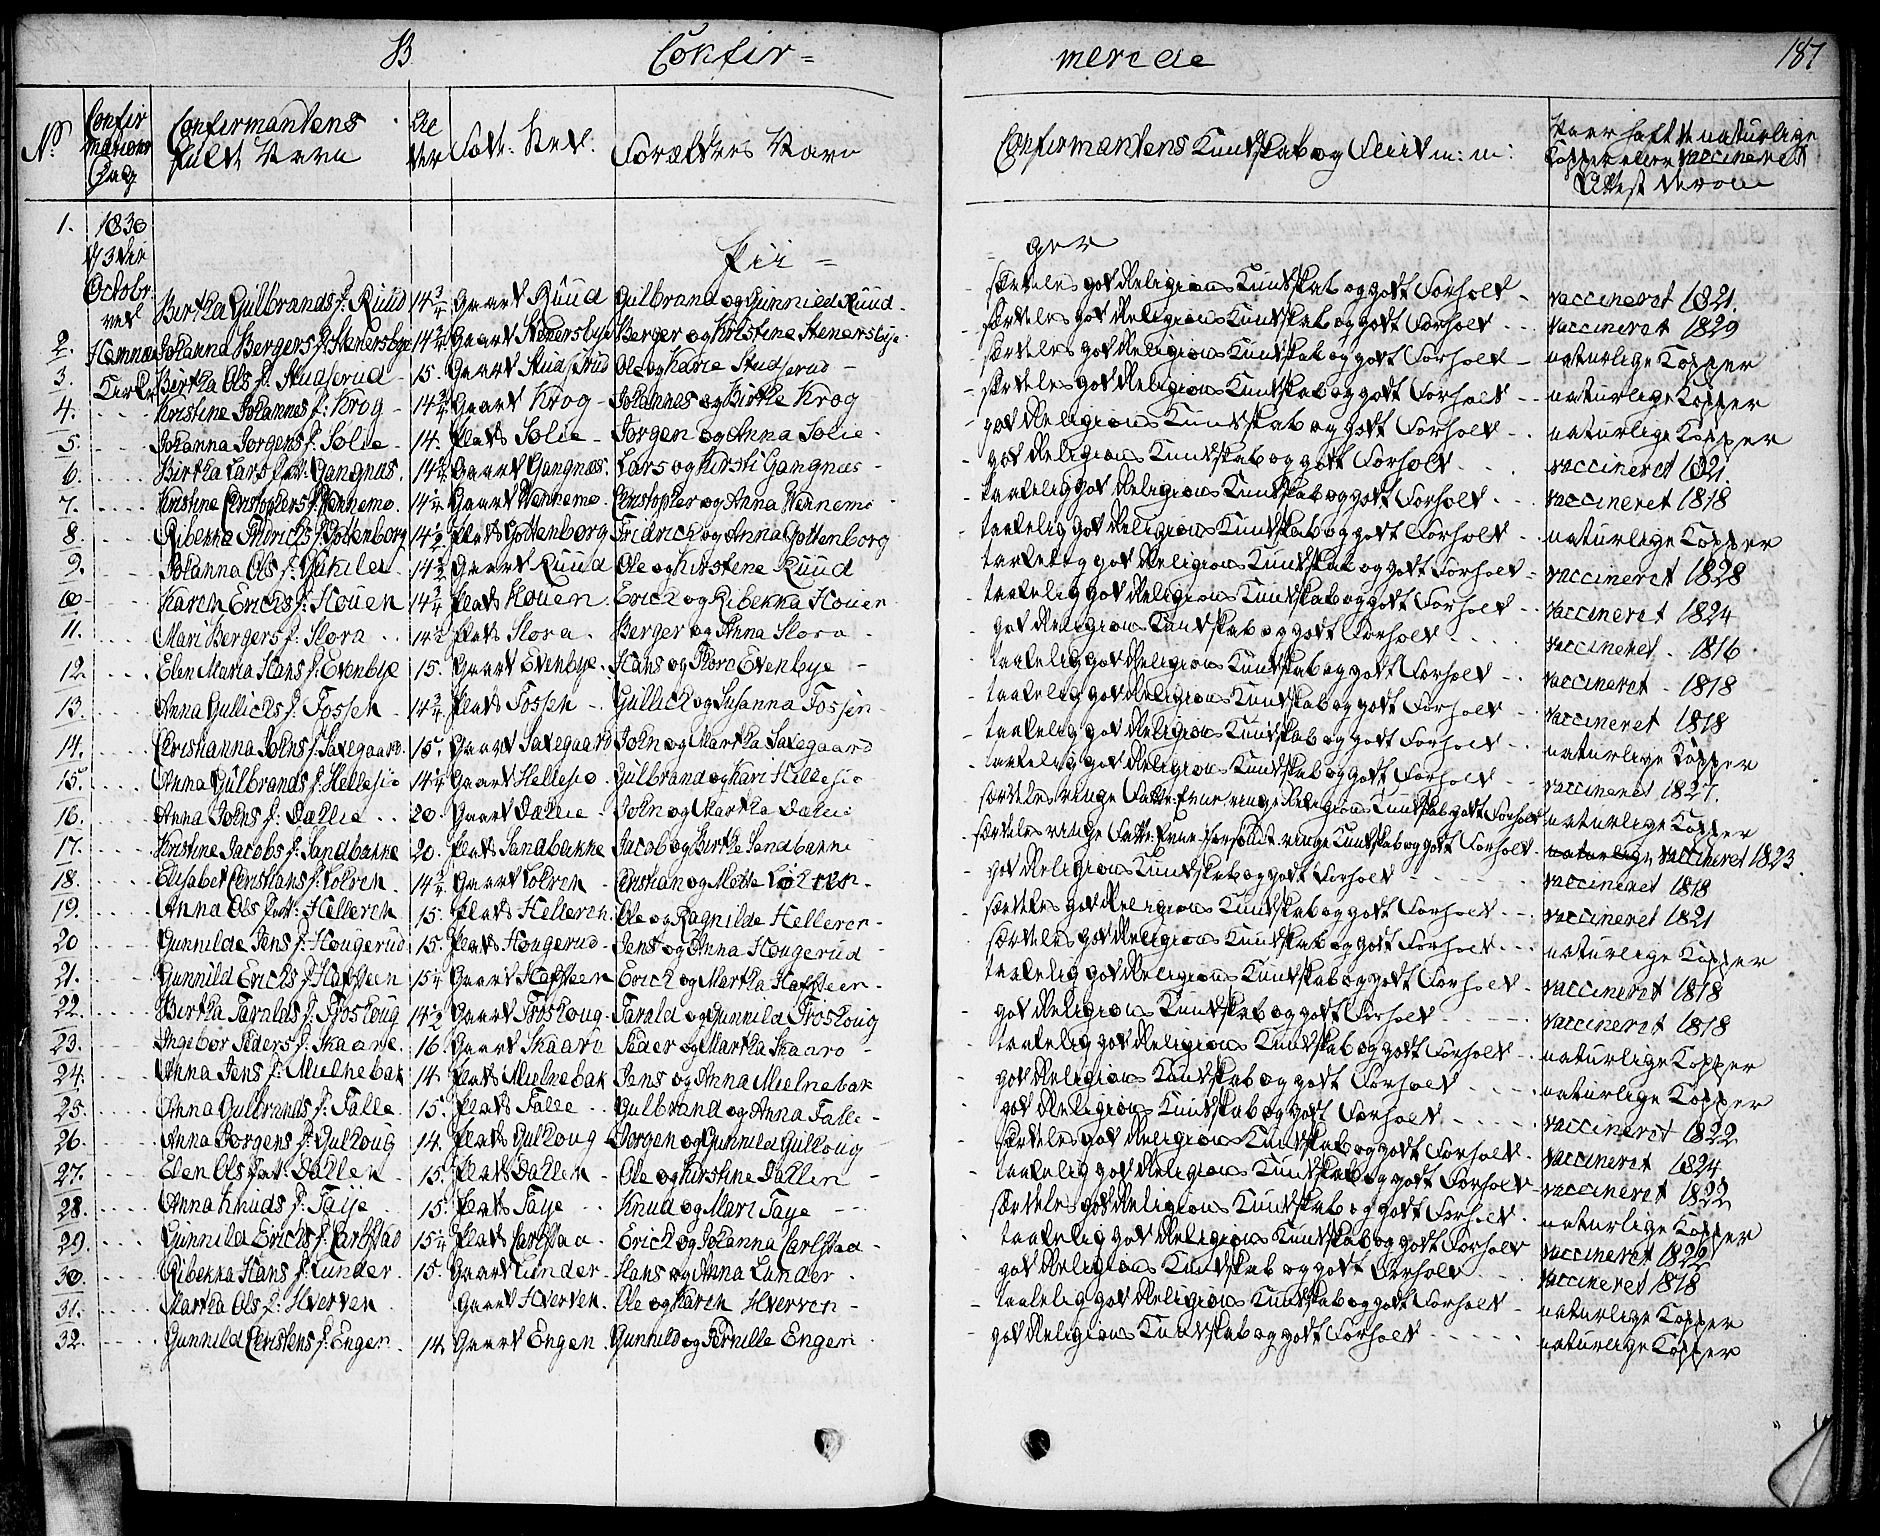 B Confir=
merede 187
No Confirmations Dag Confirmantens fulde Navn Alder Føde Sted. Forældres Navn Confirmantens Kundskab og Fliid m: m: Naar hafte naturlige Kopper eller vaccineret Attest derom
1830 d 3die Octobr. ved Hemnæs Kirke
Pii = ger
1. Birtha Gulbrands f. Ruud 14 3/4 Gaard Ruud Gulbrand og Gunnild Ruud. særdeles god Religions Kundskab og godt Forhold vaccineret 1821.
2. Johanna Bergers f. Stenersbye 14 3/4 Gaard Stenersbye Berger og Kirstine Stenersbye. særdeles god Religions Kundskab og godt Forhold vaccineret 1829
3. Birtha Ols f. Studserud 15. Gaard Studserud Ole og Karie Studserud særdeles god Religions Kundskab og godt Forhold naturlige Kopper
4. Kirstine Johannes f. Krog 14 3/4 Gaard Krog Johannes og Birthe Krog særdeles god Religions Kundskab og godt Forhold naturlige Kopper
5. Johanna Jorgens f. Solie 14. Plads Solie Jorgen og Anna Solie god Religions Kundskab og godt Forhold naturlige Kopper
6. Birtha Lars f. Gangnæs. Gaard Gangnæs. Lars og Kirsti Gangnæs god Religions Kundskab og godt Forhold vaccineret 1821.
7. Kirstine Christophers f. Hennemo. Gaard Hennemo. Christopher og Anna Hennemo taalelig god Religions Kundskab og godt Forhold vaccineret 1818
8. Ribekka Fridrichs f. Gottenborg 14 1/2 Plads Gottenborg Fridrich og Anna Gottenborg taalelig god Religions Kundskab og godt Forhold naturlige Kopper
9. Johanna Ols f. Gaard Ruud Ole og Kirstine Ruud taalelig god Religions Kundskab og godt Forhold vaccineret 1828
10. Karen Erichs f. Houen 14 3/4 Plads Houen. Erich og Ribekka Houen taalelig god Religions Kundskab og godt Forhold vaccineret 1824
11. Mari Bergers f. Slora 14 1/2 Plads Slora. Berger og Anna Slora god Religions Kundskab og godt Forhold vaccineret 1816.
12. Elen Maria Hans f. Evenbye 15. Gaard Evenbye. Hans og Evenbye taalelig god Religions Kundskab og godt Forhold vaccineret 1818
13. Anna Gullichs f. Fossen 14 3/4 Plads Fossen Gullich og Susanna Fossen taalelig god Religions Kundskab og godt Forhold vaccineret 1818
14. Christianna Johns f. Saxegaard. 15. Gaard Saxegaard John og Martha Saxegaard taalelig god Religions Kundskab og godt Forhold naturlige Kopper
15. Anna Gulbrands f. Hellesio Gaard Hellesio Gulbrand og Kari Hellesio taalelig god Religions Kundskab og godt Forhold vaccineret 1827.
16. Anna Johns f. Dahlie 20. Gaard Dahlie John og Martha Dahlie særdeles ringe Fatte Evne ringe Religions Kundskab godt Forhold naturlige Kopper
17. Kirstine Jacobs f. Sandbakke 20. Plads Sandbakke Jacob og Birthe Sandbakke særdeles ringe Fatte Evne ringe Kundskab og godt Forhold naturlige vaccineret 1823.
18. Elisabet Christians f. Holren 14 3/4 Gaard Holren Christian og Mette god Religions Kundskab og godt Forhold vaccineret 1818
19. Anna Ols Helleren 15. Plads Helleren. Ole og Ragnilde Helleren særdeles god Religions Kundskab og godt Forhold vaccineret 1821
20 Gunnilde Jens f. Hougerud 15. Plads Hougerud Jens og Anna Hougerud særdeles god Religions Kundskab og godt Forhold naturlige Kopper
21. Gunnild Erichs f. Hafsteen Gaard Hafsteen Erich og Martha Hafsteen taalelig god Religions Kundskab og godt Forhold vaccineret 1818
22. Birtha Taralds f. Froshoug 14 1/2 Gaard Froshoug Tarald og Gunnild Froshoug god Religions Kundskab og godt Forhold vaccineret 1818
23. Ingebor Peders f. Skaare. 16. Gaard Skaare Peder og Martha Skaare taalelig god Religions Kundskab og godt Forhold naturlige Kopper
24. Anna Jens f. Mielnebak 14. Plads Mielnebak Jens og Anna Mielnebak god Religions Kundskab og godt Forhold naturlige Kopper
25. Anna Gulbrands f. Falle 15. Plads Falle Gulbrand og Anna Falle god Religions Kundskab og godt Forhold vaccineret 1822
26. Anna Jorgens f. Gulhoug 14. Plads Gulhoug Jorgen og Gunnild Gulhoug særdeles god Religions Kundskab og godt Forhold vaccineret 1824
27. Elen Ols Dahlen 15. Plads Dahlen Ole og Kirstine Dahlen taalelig god Religions Kundskab og godt Forhold vaccineret 1822
28. Anna Knuds f. Faye 15. Plads Faye Knud og Mari Faye særdeles god Religions Kundskab og godt Forhold naturlige Kopper
29. Gunnild Erichs f. Carlstad Plads Carlstad Erich og Johanna Carlstad taalelig god Religions Kundskab og godt Forhold vaccineret 1822
30. Ribekka Hans f. Lunder 15. Gaard Lunder Hans og Anna Lunder god Religions Kundskab og godt Forhold vaccineret 1818
31. Martha Ols f. Hverven Gaard Hverven. Ole og Karen Hverven taalelig god Religions Kundskab og godt Forhold naturlige Kopper
32. Gunnild Christens f. Engen 14. Gaard Engen Gunnild og Pernille Engen god Religions Kundskab og godt Forhold naturlige Kopper